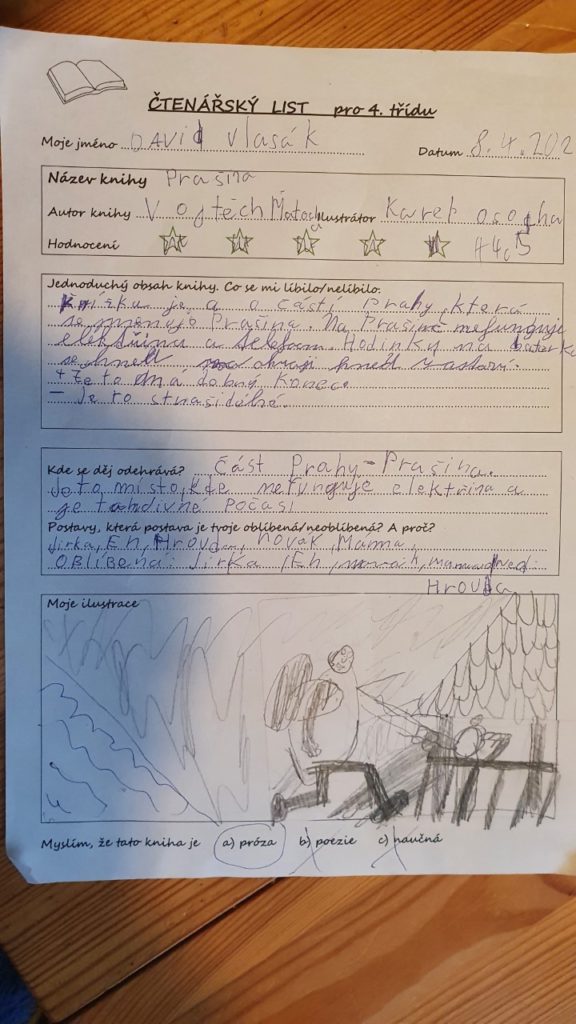 ČTENÁŘSKÝ LIST pro 4. třídu
Moje jméno DAVID Vlasák Datum 8.4.202
Název knihy Prašina
Autor knihy Vojtěch Matocha Ilustrátor Karel osoha
Hodnocení
Jednoduchý obsah knihy. Co se mi líbilo/nelíbilo.
je a o částí Prahy, která
se Prašina. Na Prašině nefunguje
elektřina a telefon. Hodinky na baterk
se hned
+ že to má dobrý konec
- Je to strašidelné.
Kde se děj odehrává? část Prahy-Prašina.
Je to místo, kde nefunguje elektřina a
je tam divné počasí
Postavy, která postava je tvoje oblíbená/neoblíbená? A proč?
Jirka, En, Hrouda, novák, Mama,
Oblíbena: Jirka, En,
Hrouda
Moje ilustrace
Myslím, že tato kniha je a) próza b) poezie c) naučná